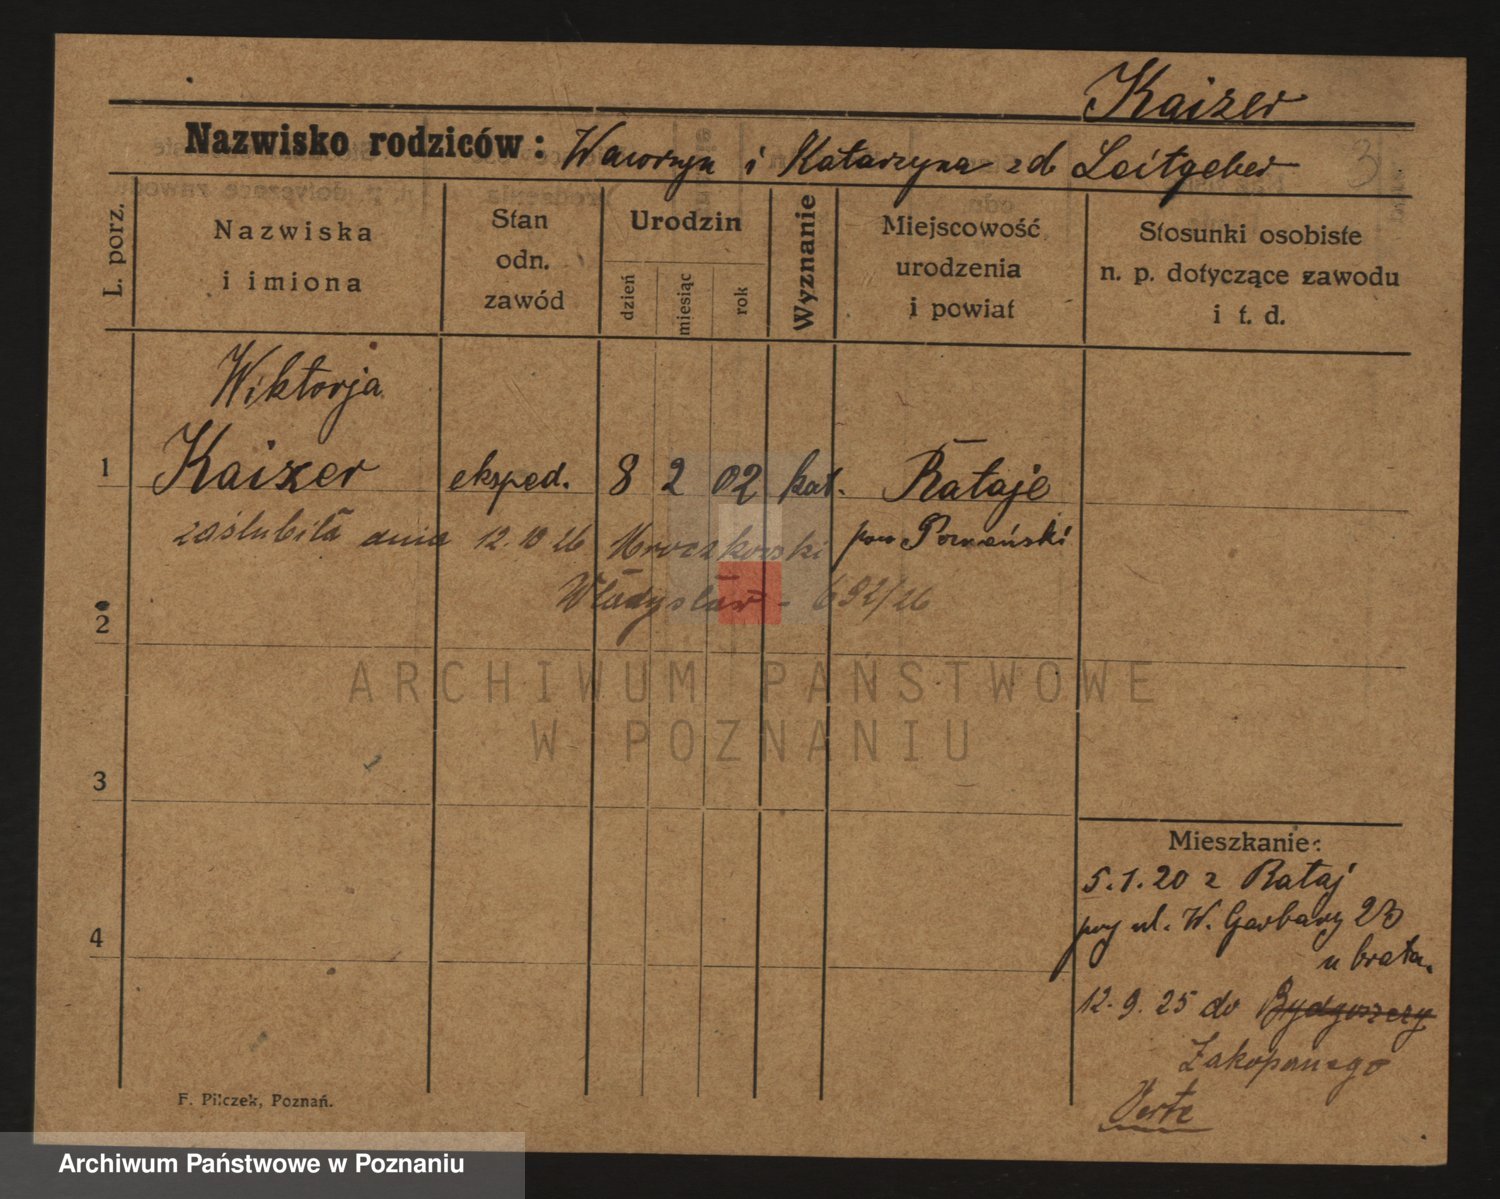 Kaizer
Nazwisko rodziców: Wawrzyn i Katarzyna zd Leitgeber
3
L. porz.
Nazwiska
i imiona
Stan
odn.
zawód
Urodzin
dzień
miesiąc
rok
Wyznanie
Miejscowość
urodzenia
i powiat
Stosunki osobiste
n. p. dotyczące zawodu
i t. d.
Wiktorja
1 Kaizer eksped. 8 2 02 kat. Rataje
zaślubiła dnia 12.10 26 Mroczkowski pow Poznański
Władysław - 692/26
2
ARCHIWUM PAŃSTWOWE
W POZNANIU
3
4
Mieszkanie:
5.1.20 z Rataj
przy ul. W. Garbary 23
u brata.
12.9.25 do Bydgoszczy
Zakopanego
Verte
F. Pilczek, Poznań.
Archiwum Państwowe w Poznaniu